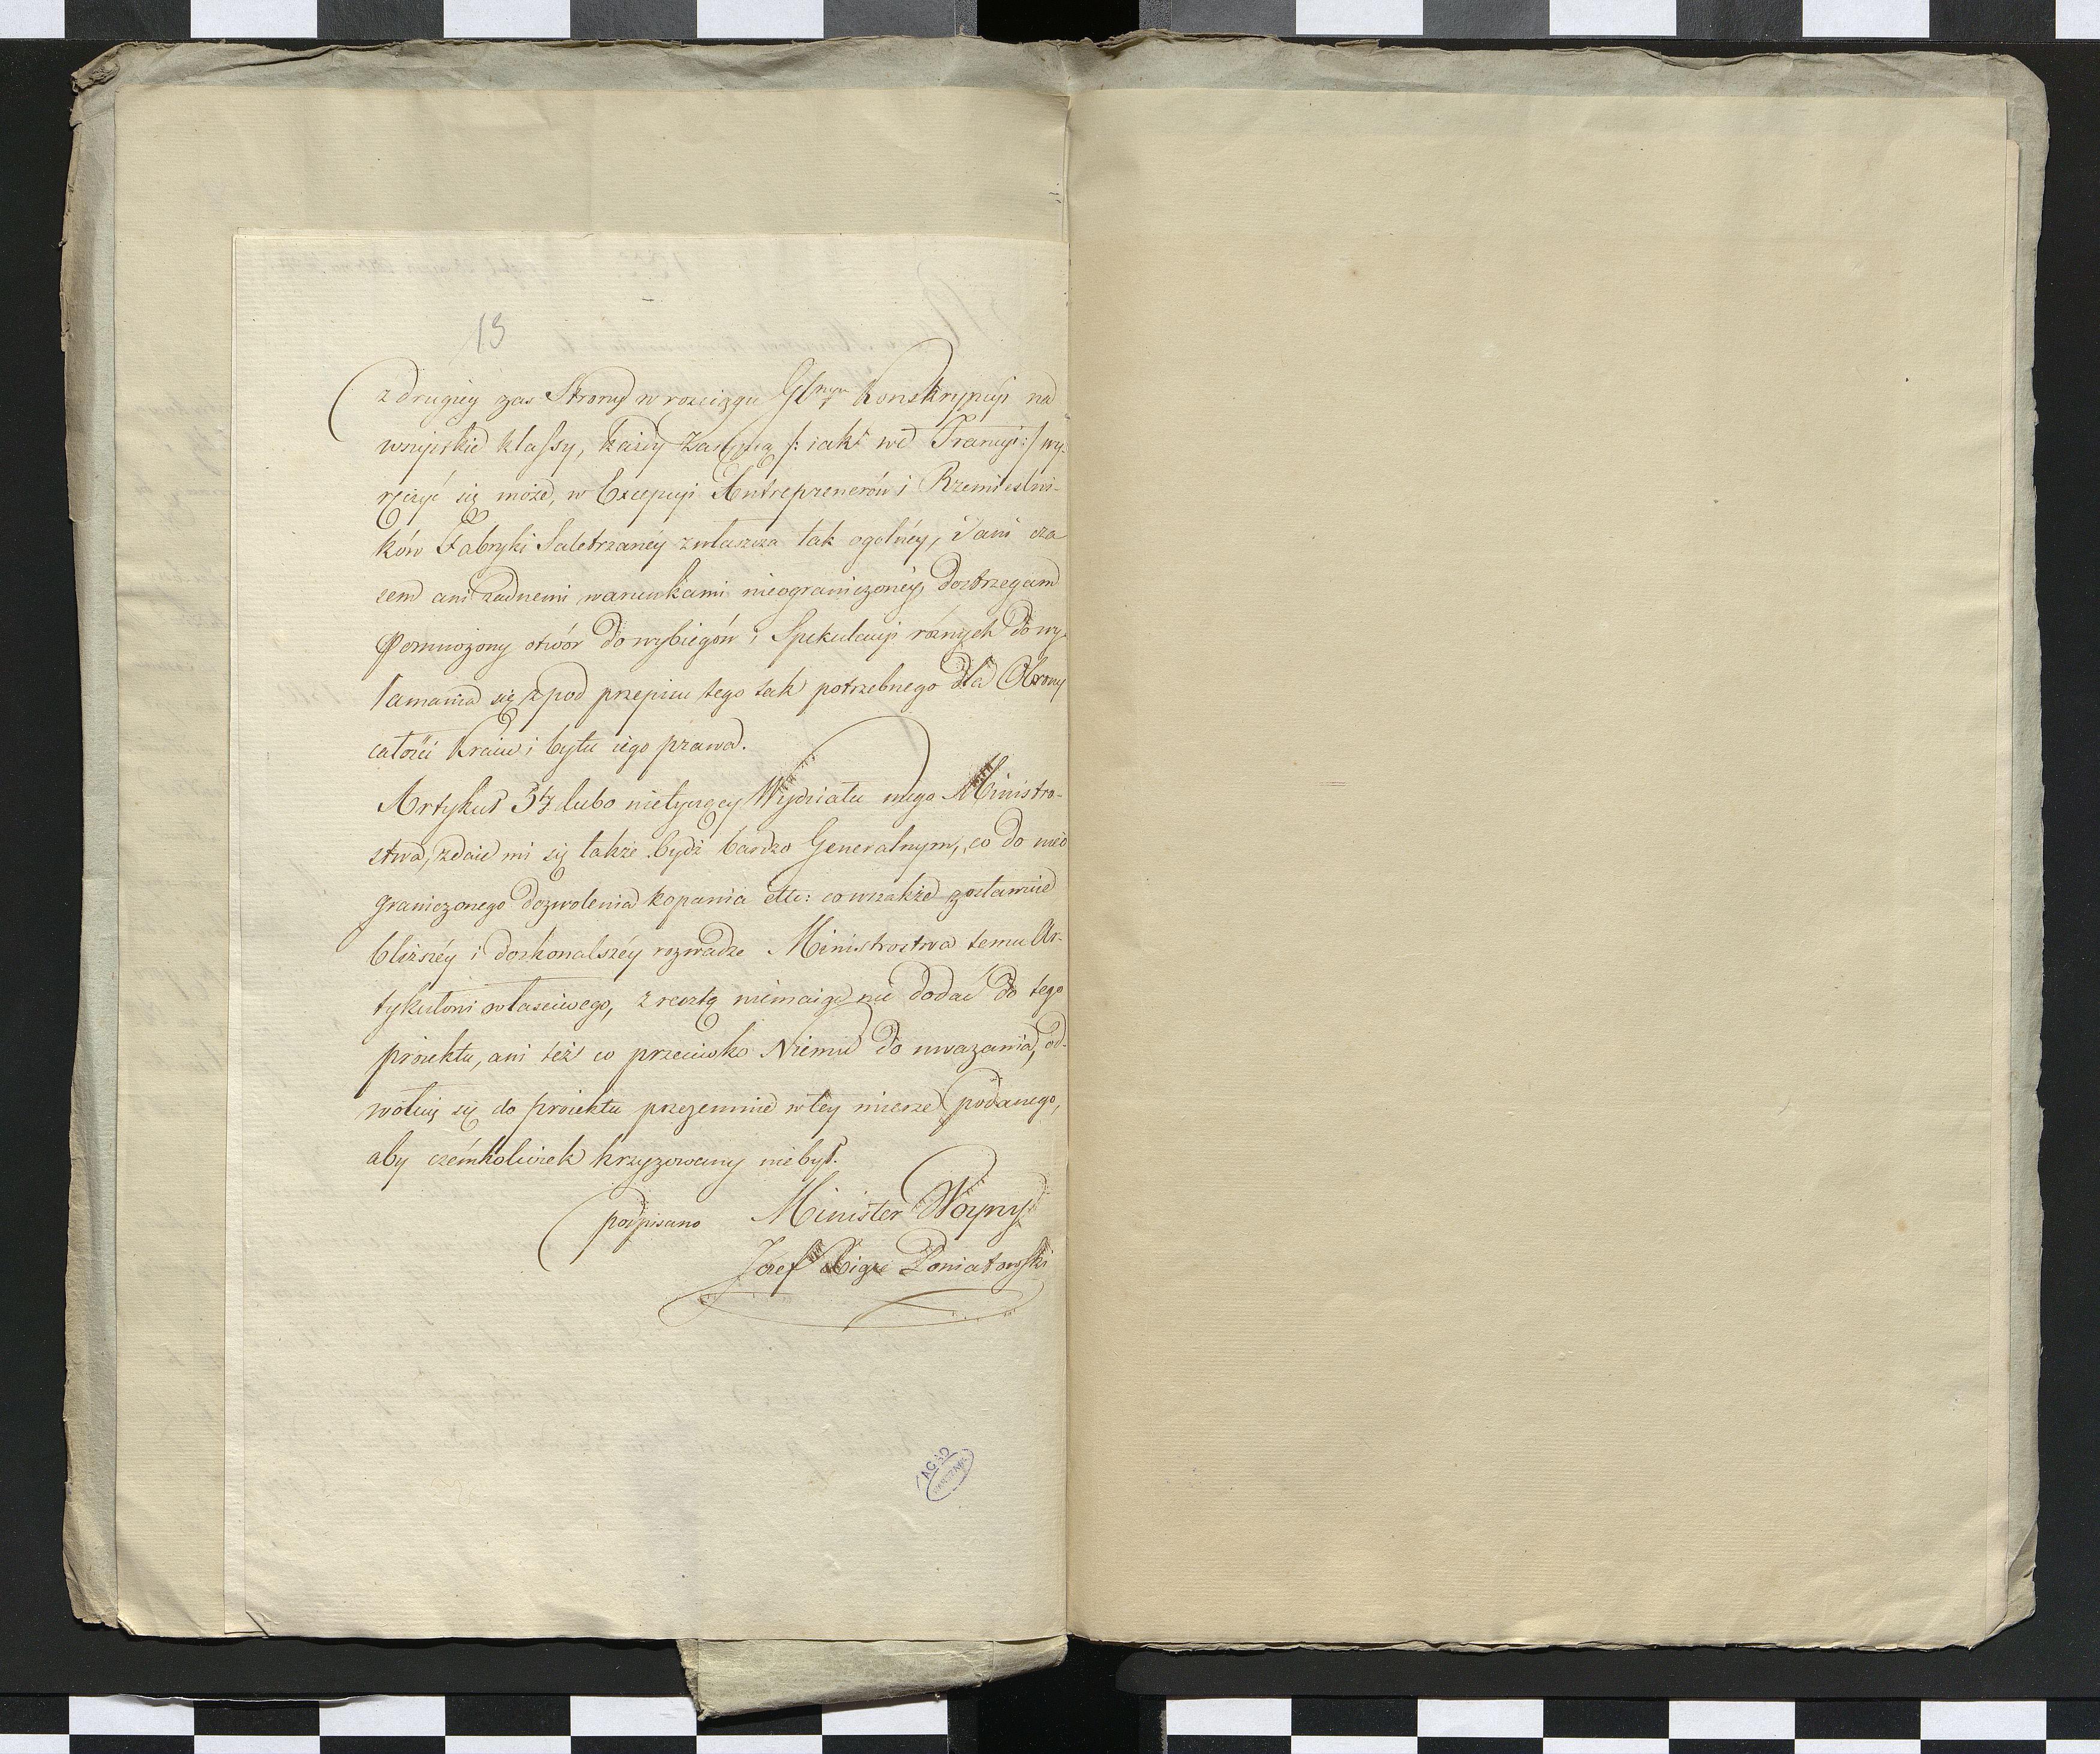 13
z drugiey zas Strony w rozciągu Glney Konskrypcyi na
wszystkie klassy, każdy Zastępcą /: iak we Francyi :/ wy-
ręczyć się może, w Excepcyi Antreprenerów i Rzemieslni-
ków Fabryki Saletrzanéy zwłaszcza tak ogolnéy, i ani cza
sem ani żadnemi warunkami nieograniczonéy, dostrzegam
Pomnożony otwór do wybiegów i Spekulacyi róznych do wy-
łamania się z pod przepisu tego tak potrzebnego dla Obrony
całości Kraiu i bytu iego prawa.
Artykuł 34 lubo nietyczący Wydziału mego Ministro-
stwa, zdaie mi się także bydź bardzo Generalnym, co do nieo
graniczonego dozwolenia kopania etc: co wszakże zostawuie
bliższéy i doskonalszéy rozwadze Ministrostwa temu Ar-
tykułowi własciwego, z resztą niemaiąc nic dodać do tego
proiektu, ani też co przeciwko Niemu do uwazania, od-
wołuię się do proiektu przezemnie w tey mierze podanego,
aby czémkolwiek krzyzowany niebył.
podpisano Minister Woyny
Jozef Xiąże Poniatowski
AGAD